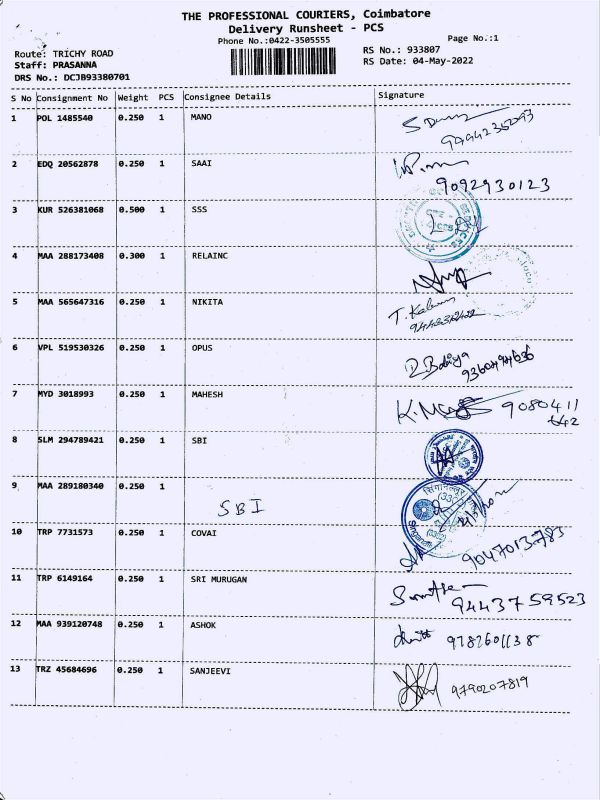 THE PROFESSIONAL COURIERS, Coimbatore
Delivery Runsheet - PCS
Phone No.:0422-3505555
Page No.:1
Route: TRICHY ROAD
RS No.: 933807
Staff: PRASANNA
RS Date: 04-May-2022
DRS No.: DCJB93380701
S No Consignment No Weight PCS Consignee Details Signature
1 POL 1485540 0.250 1 MANO
2 EDQ 20562878 0.250 1 SAAI
9092930123
3 KUR 526381068 0.500 1 SSS
4 MAA 288173408 0.300 1 RELAINC
5 MAA 565647316 0.250 1 NIKITA
6 VPL 519530326 0.250 1 OPUS
7 MYD 3018993 0.250 1 MAHESH
9080411
642
8 SLM 294789421 0.250 1 SBI
9 MAA 289180340 0.250 1
SBI
10 TRP 7731573 0.250 1 COVAI
9047013783
11 TRP 6149164 0.250 1 SRI MURUGAN
9443759523
12 MAA 939120748 0.250 1 ASHOK
9787601138
13 TRZ 45684696 0.250 1 SANJEEVI
9790207819